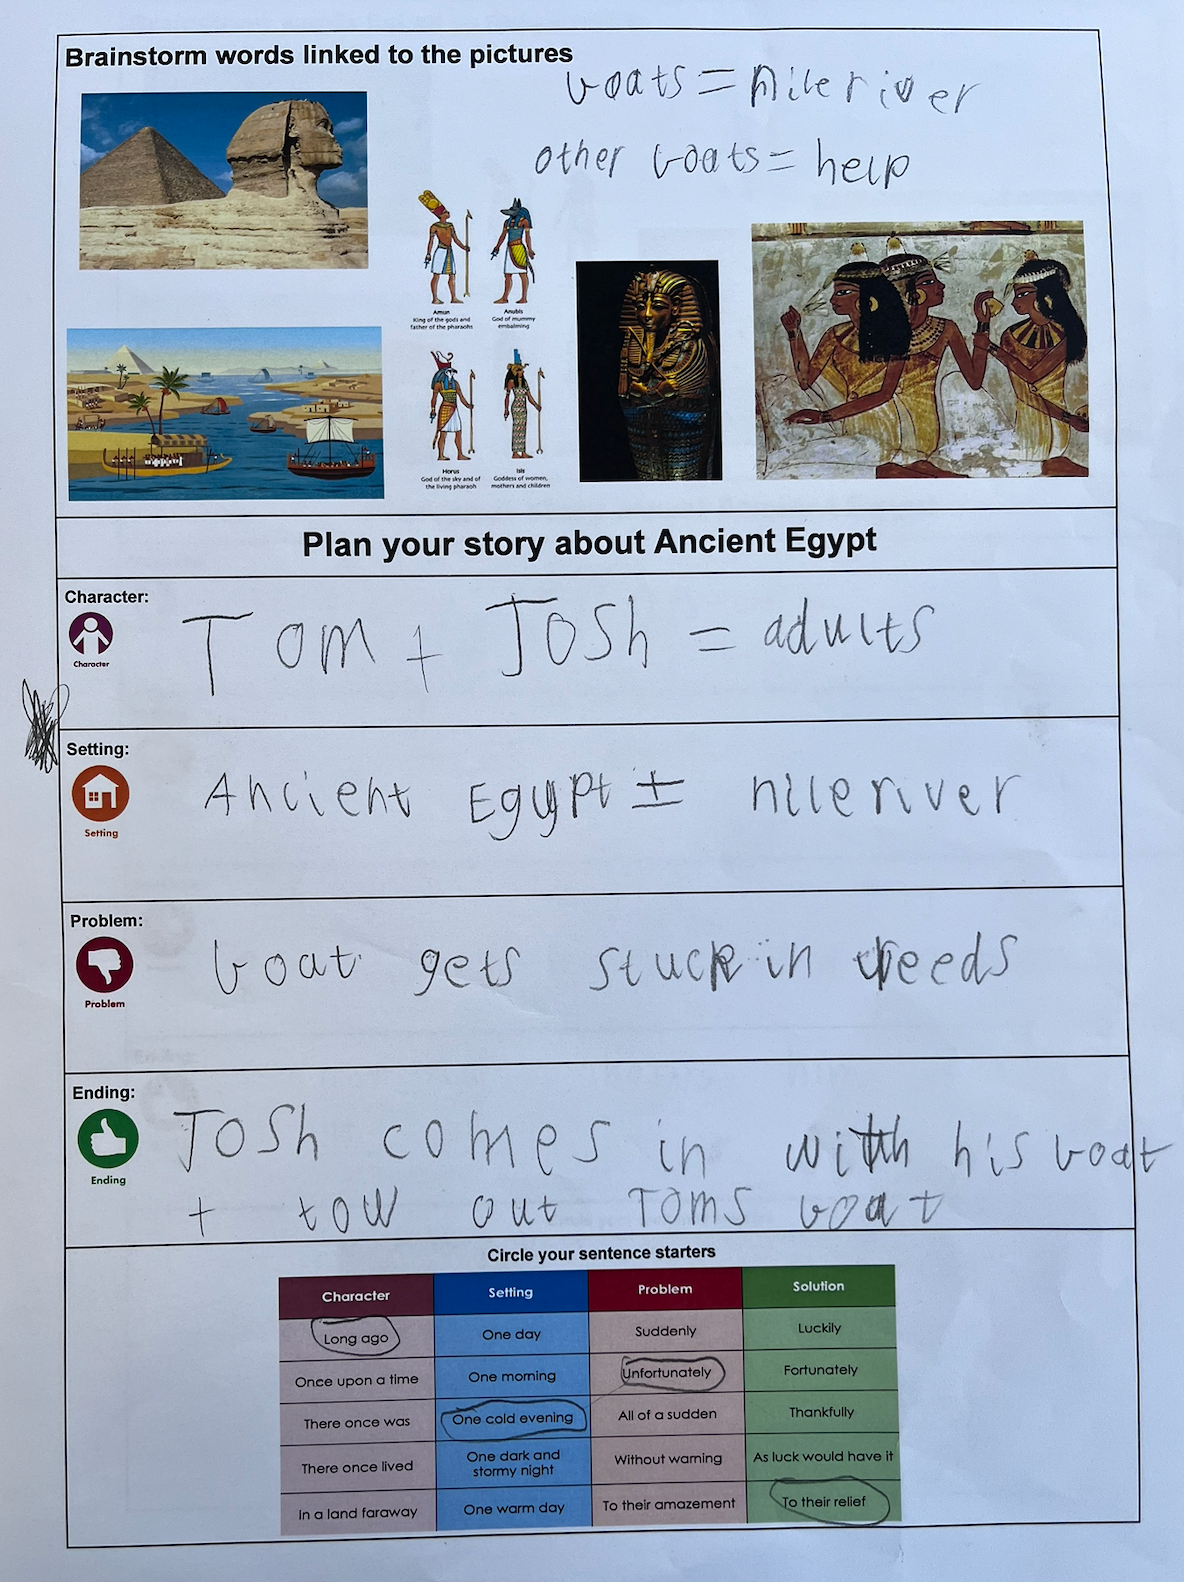 Brainstorm words linked to the pictures
boats = nile river
other boats = help
Amun
King of the gods and
father of the pharaohs
Anubis
God of mummy
embalming
Horus
God of the sky and of
the living pharaoh
Isis
Goddess of women,
mothers and children
Plan your story about Ancient Egypt
Character:
Character
Tom + Josh = adults
Setting:
Setting
Ancient Egypt ± nile river
Problem:
Problem
boat gets stuck in reeds
Ending:
Ending
Josh comes in with his boat
+ tow out Toms boat
Circle your sentence starters
Character Setting Problem Solution
Long ago One day Suddenly Luckily
Once upon a time One morning Unfortunately Fortunately
There once was One cold evening All of a sudden Thankfully
There once lived One dark and stormy night Without warning As luck would have it
In a land faraway One warm day To their amazement To their relief